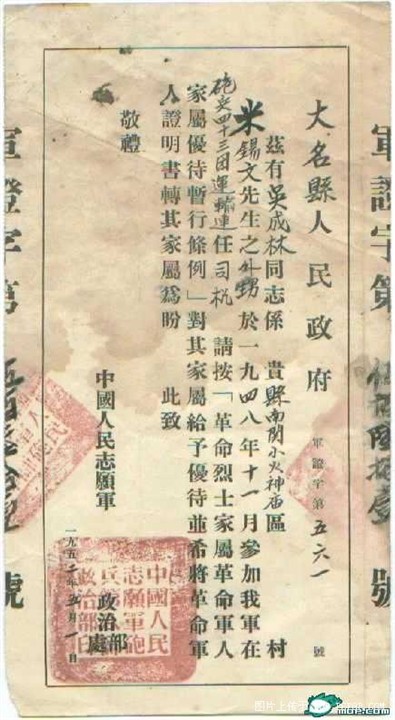 大名縣人民政府
軍證字第五六一號
茲有吳成林同志係 貴縣南関小火神庙區 村
米錫文先生之外甥於一九四八年十一月參加我軍在
砲兵四十三团運輸連任司机 請按「革命烈士家屬革命軍人
家屬優待暫行條例」對其家屬給予優待並希將革命軍
人證明書轉其家屬爲盼 此致
敬禮
中國人民志願軍
政治部
處
一九五二年五月一日
軍證字第
號
軍證字第
號
中國人民
志願軍砲
政治部印
MOP.COM